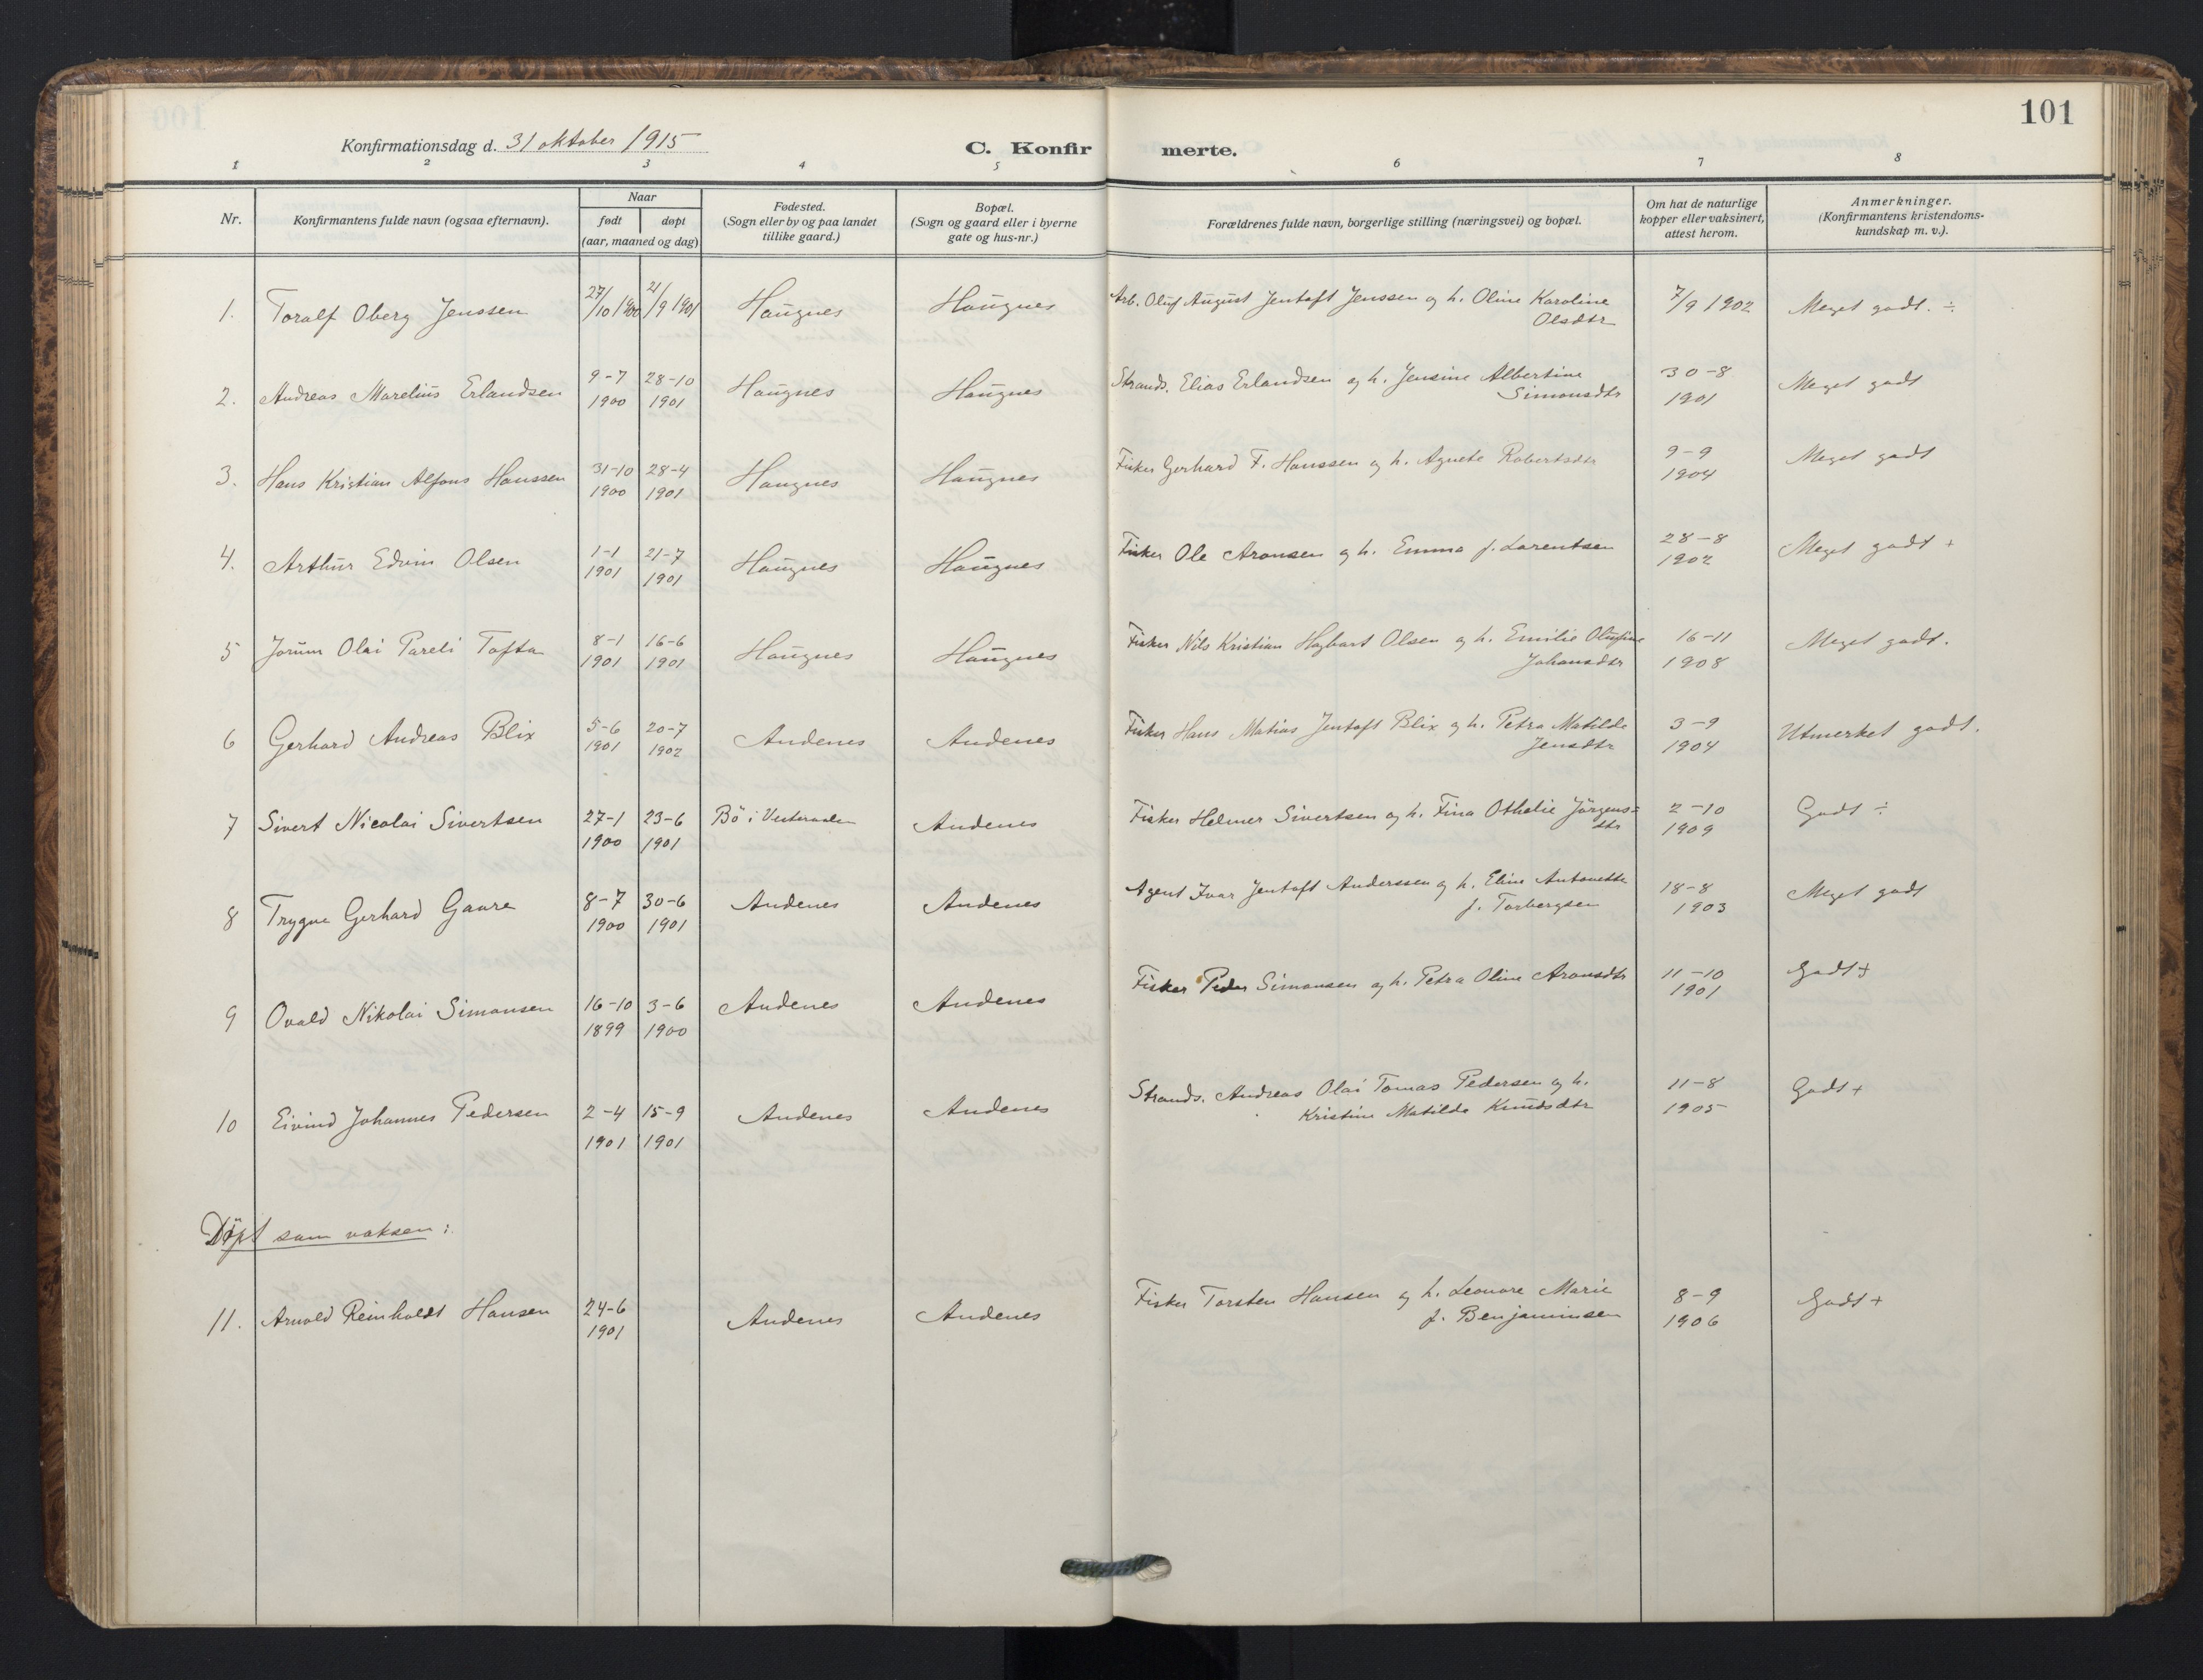 101
Konfirmationsdag d. 31 oktober 1915
C. Konfirmerte.
1 2 3 4 5 6 7 8
Nr.
Konfirmantens fulde navn (ogsaa efternavn).
Naar
født døpt
(aar, maaned og dag)
Fødested.
(Sogn eller by og paa landet
tillike gaard.)
Bopæl.
(Sogn og gaard eller i byerne
gate og hus-nr.)
Forældrenes fulde navn, borgerlige stilling (næringsvei) og bopæl.
Om hat de naturlige
kopper eller vaksinert,
attest herom.
Anmerkninger.
(Konfirmantens kristendoms-
kundskap m. v.).
1. Toralf Oberg Jenssen 27/10 1900 21/9 1901 Haugnes Haugnes Arb. Oluf August Jentoft Jenssen og h. Oline Karoline 7/9 1902 Meget godt. ÷
Olsdtr
2. Andreas Marelius Erlandsen 9-7 28-10 Haugnes Haugnes Strands. Elias Erlandsen og h. Jensine Albertine 30-8 Meget godt
1900 1901 Simonsdtr 1901
3. Hans Kristian Alfons Hanssen 31-10 28-4 Haugnes Haugnes Fisker Gerhard F. Hanssen og h. Agnete Robertsdtr 9-9 Meget godt
1900 1901 1904
4. Arthur Edvin Olsen 1-1 21-7 Haugnes Haugnes Fisker Ole Aronsen og h. Emma f. Lorentsen 28-8 Meget godt +
1901 1901 1902
5 Jorum Olai Pareli Tofta 8-1 16-6 Haugnes Haugnes Fisker Nils Kristian Hagbart Olsen og h. Emilie Olufine 16-11 Meget godt.
1901 1901 Johansdtr 1908
6 Gerhard Andreas Blix 5-6 20-7 Andenes Andenes Fisker Hans Matias Jentoft Blix og h. Petra Matilde 3-9 Utmerket godt.
1901 1902 Jensdtr 1904
7 Sivert Nicolai Sivertsen 27-1 23-6 Bö i Vesteraalen Andenes Fisker Helmer Sivertsen og h. Fina Othelie Jörgens= 2-10 Godt ÷
1900 1901 dtr 1909
8 Trygve Gerhard Gaare 8-7 30-6 Andenes Andenes Agent Ivar Jentoft Anderssen og h. Eline Antonette 18-8 Meget godt
1900 1901 f. Torbergsen 1903
9 Ovald Nikolai Simonsen 16-10 3-6 Andenes Andenes Fisker Peder Simonsen og h. Petra Oline Aronsdtr 11-10 Godt +
1899 1900 1901
10 Eivind Johannes Pedersen 2-4 15-9 Andenes Andenes Strands. Andreas Olai Tomas Pedersen og h. 11-8 Godt +
1901 1901 Kristine Matilde Knudsdtr 1905
Döpt som voksen:
11. Arnold Reinholdt Hansen 24-6 Andenes Andenes Fisker Torsten Hansen og h. Leonore Marie 8-9 Godt +
1901 f. Benjaminsen 1906